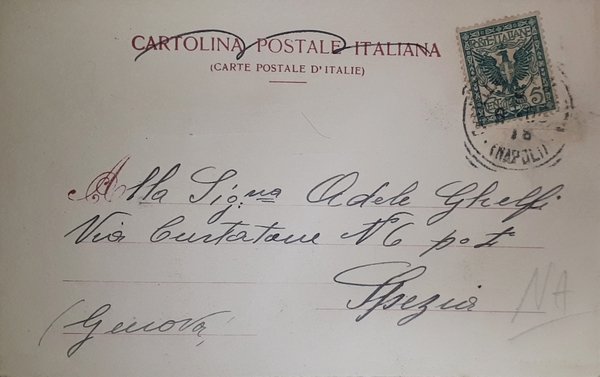 CARTOLINA POSTALE ITALIANA
(CARTE POSTALE D'ITALIE)
POSTE ITALIANE
CENTESIMI 5
18
(NAPOLI)
Alla Sig:na Adele Ghelfi
Via Curtatone N 6 p.
Spezia
(Genova)
NA